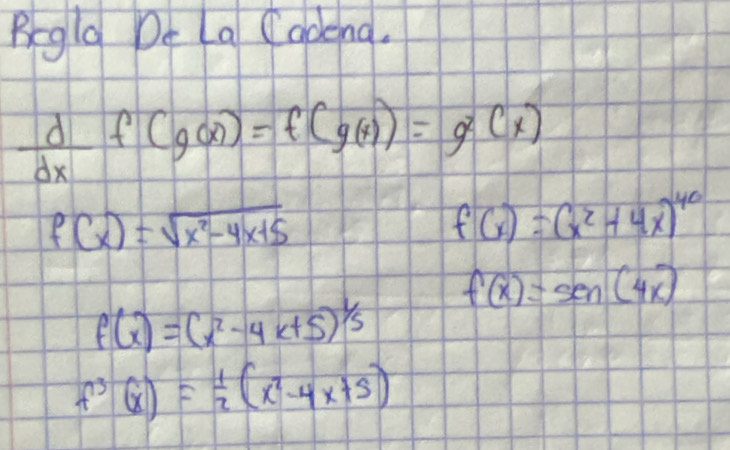 Regla De La Cadena.
d/dx f(g(x)) = f(g(x)) = g'(x)
f(x) = √x²-4x+5
f(x) = (x²+4x)⁴⁰
f(x) = sen(4x)
f(x) = (x²-4x+5)^1/5
f'(x) = 1/2 (x²-4x+5)